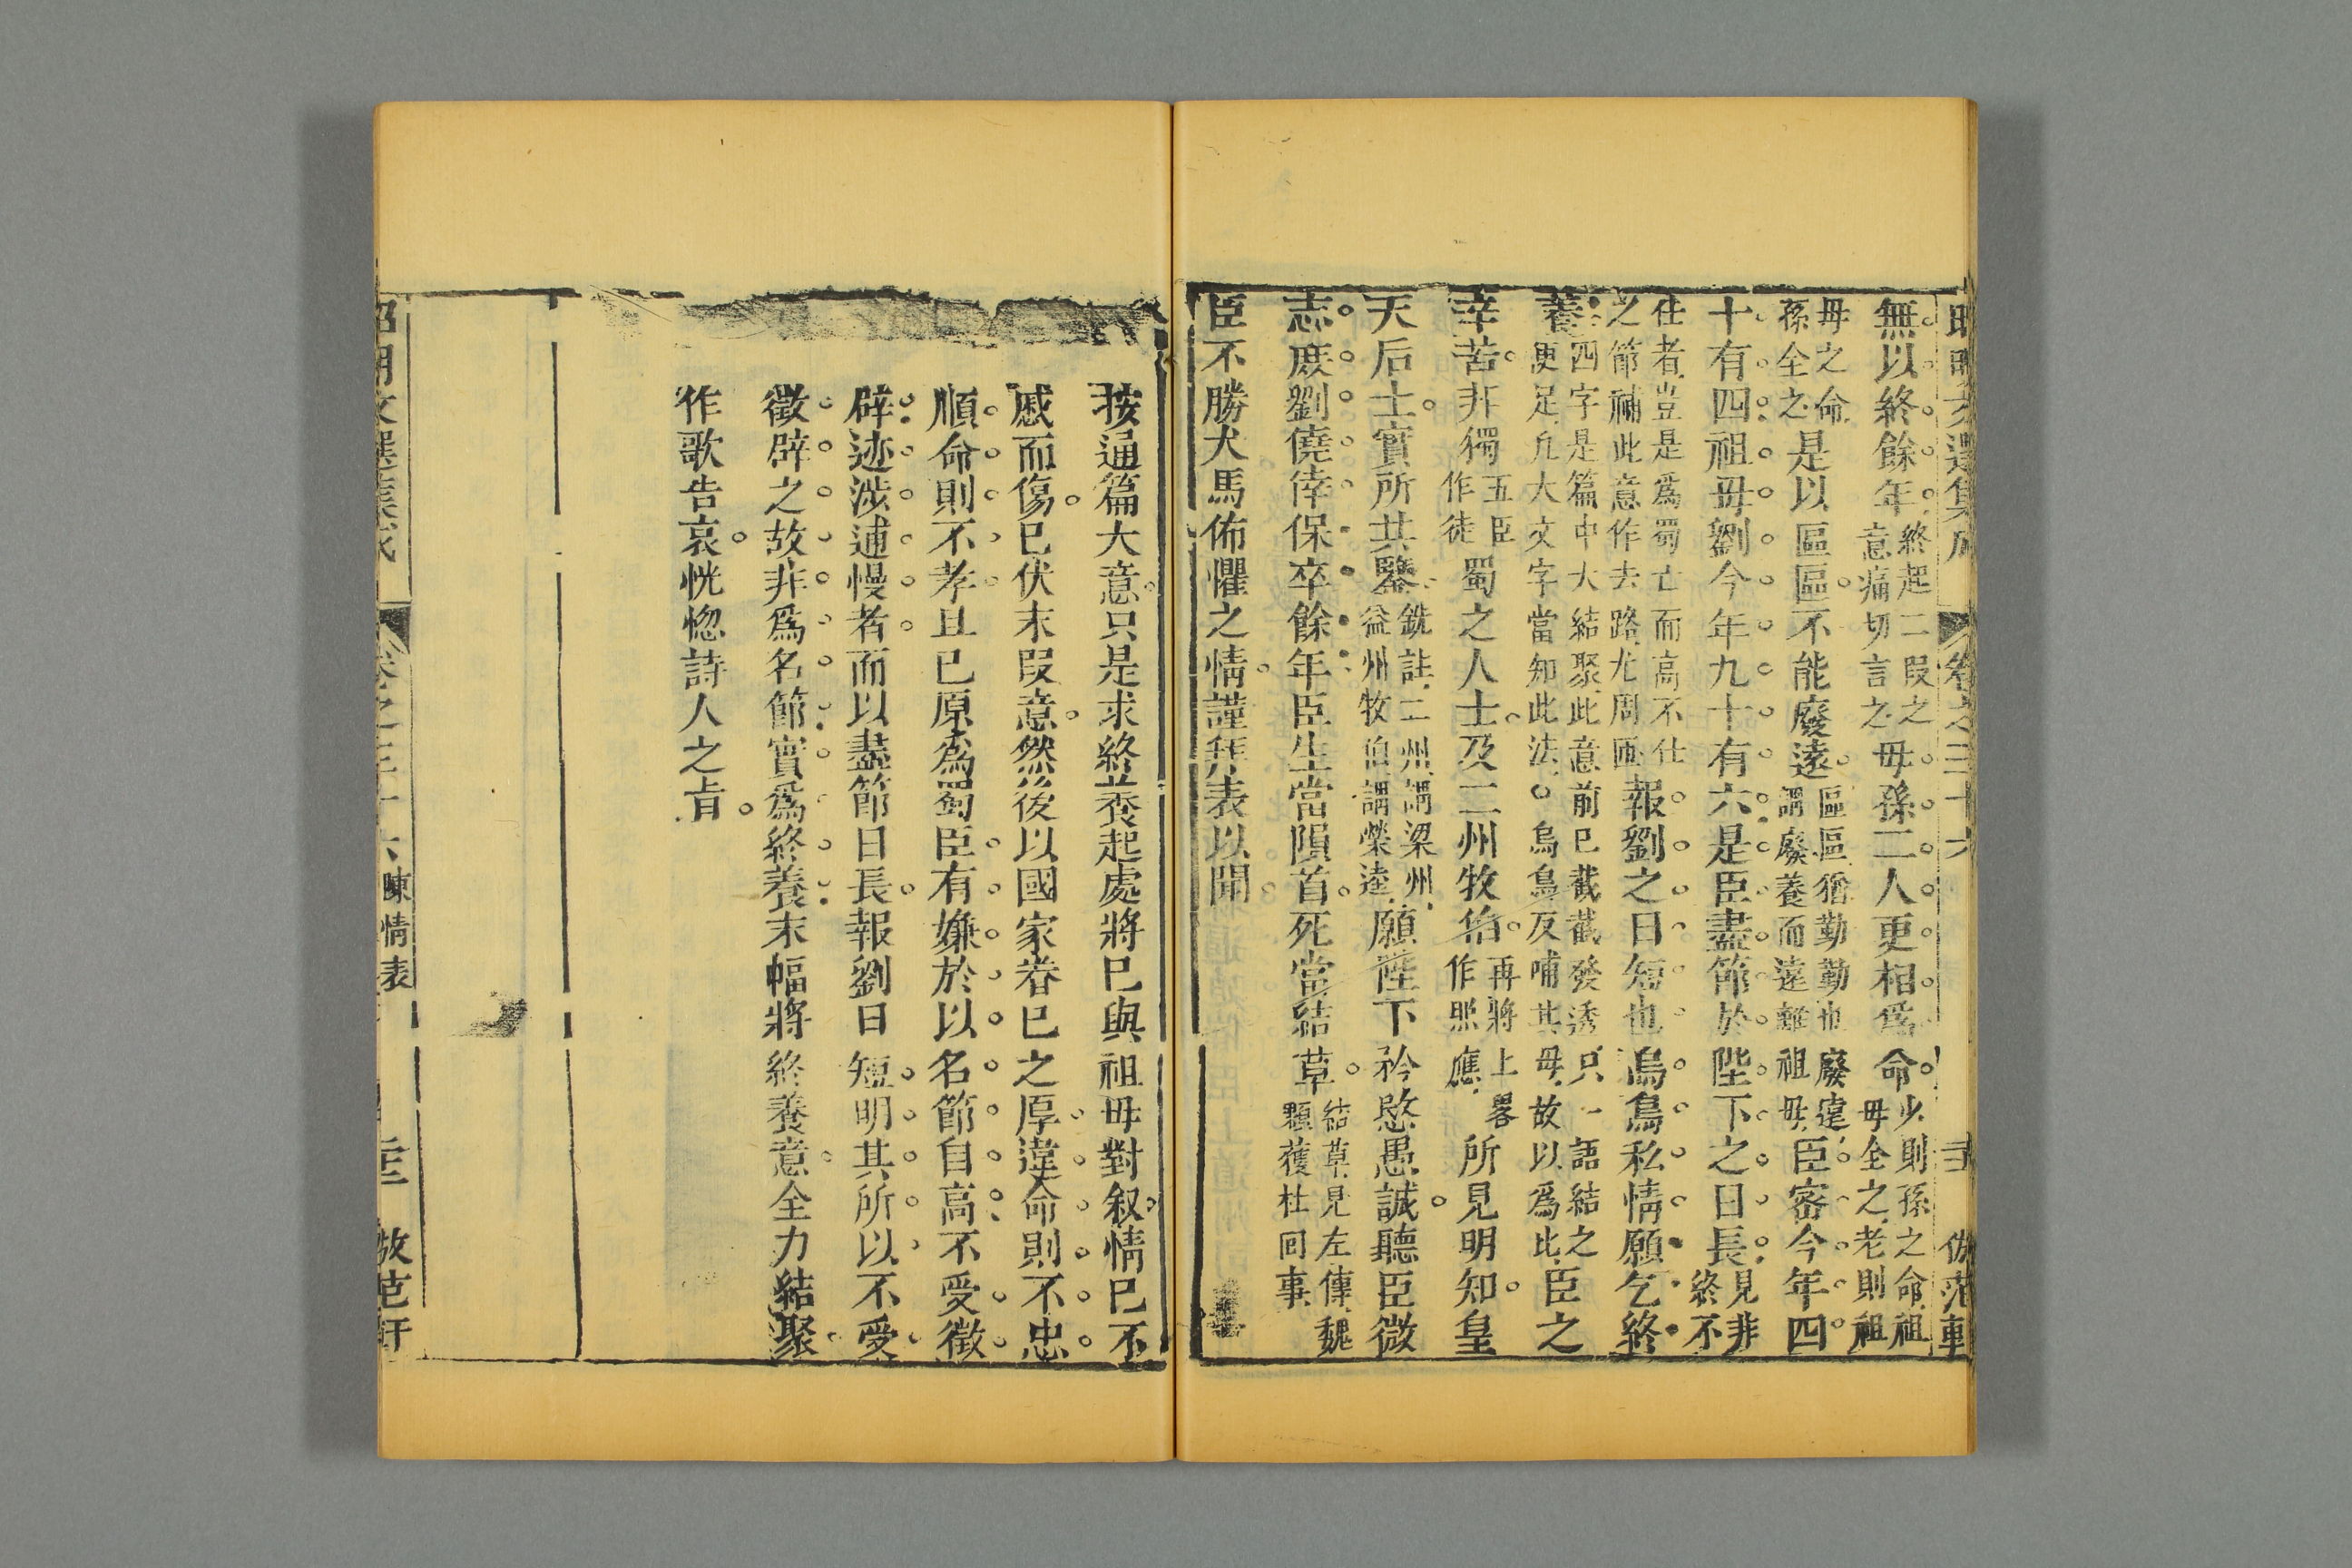 昭明文選集成 卷之三十六 倣范軒
無以終餘年終起二段之意痛切言之母孫二人更相爲命少則孫之命祖母全之老則祖
母之命孫全之是以區區不能廢遠區區猶勤勤也廢違謂廢養而遠離祖母臣密今年四
十有四祖母劉今年九十有六是臣盡節於陛下之日長見非終不
仕者豈是爲蜀亡而高不仕之節補此意作去路尤周匝報劉之日短也烏鳥私情願乞終
養四字是篇中大結聚此意前已截截發透只一語結之便足凡大文字當知此法○烏鳥反哺其母故以爲比臣之
辛苦非獨五臣作徒蜀之人士及二州牧伯再將上畧作照應所見明知皇
天后土實所共鑒銑註二州謂梁州益州牧伯謂榮逵願陛下矜愍愚誠聽臣微
志庶劉僥倖保卒餘年臣生當隕首死當結草結草見左傳魏顆獲杜回事
臣不勝犬馬怖懼之情謹拜表以聞
按通篇大意只是求終養起處將已與祖母對叙情已不
戚而傷已伏末段意然後以國家眷已之厚違命則不忠
順命則不孝且已原爲蜀臣有嫌於以名節自高不受徵
辟迹涉逋慢者而以盡節日長報劉日短明其所以不受
徵辟之故非爲名節實爲終養末幅將終養意全力結聚
作歌告哀恍惚詩人之旨
昭明文選集成 卷之三十六 陳情表 倣范軒